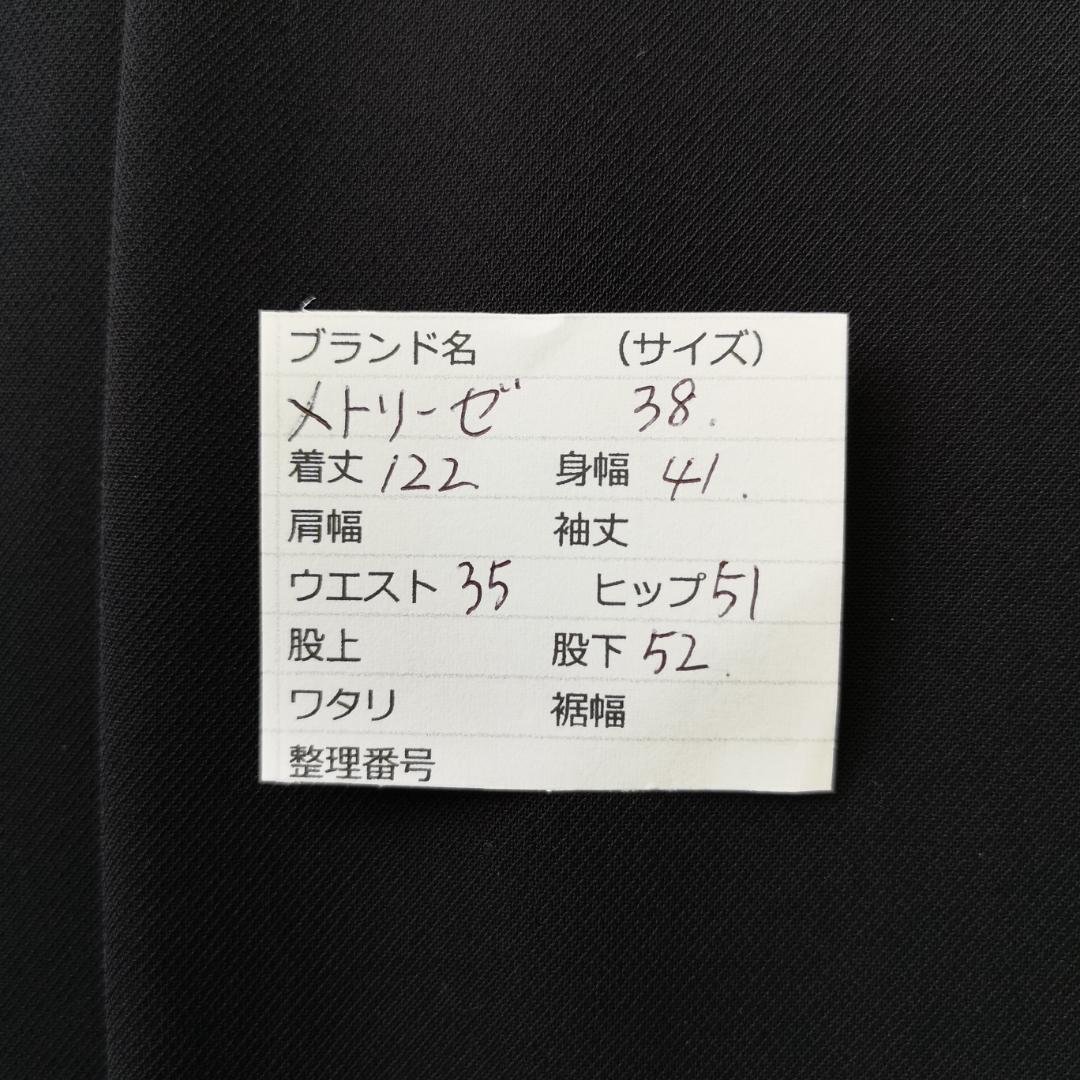 ブランド名 (サイズ)
メトリーゼ 38.
着丈 122 身幅 41.
肩幅 袖丈
ウエスト 35 ヒップ 51
股上 股下 52.
ワタリ 裾幅
整理番号